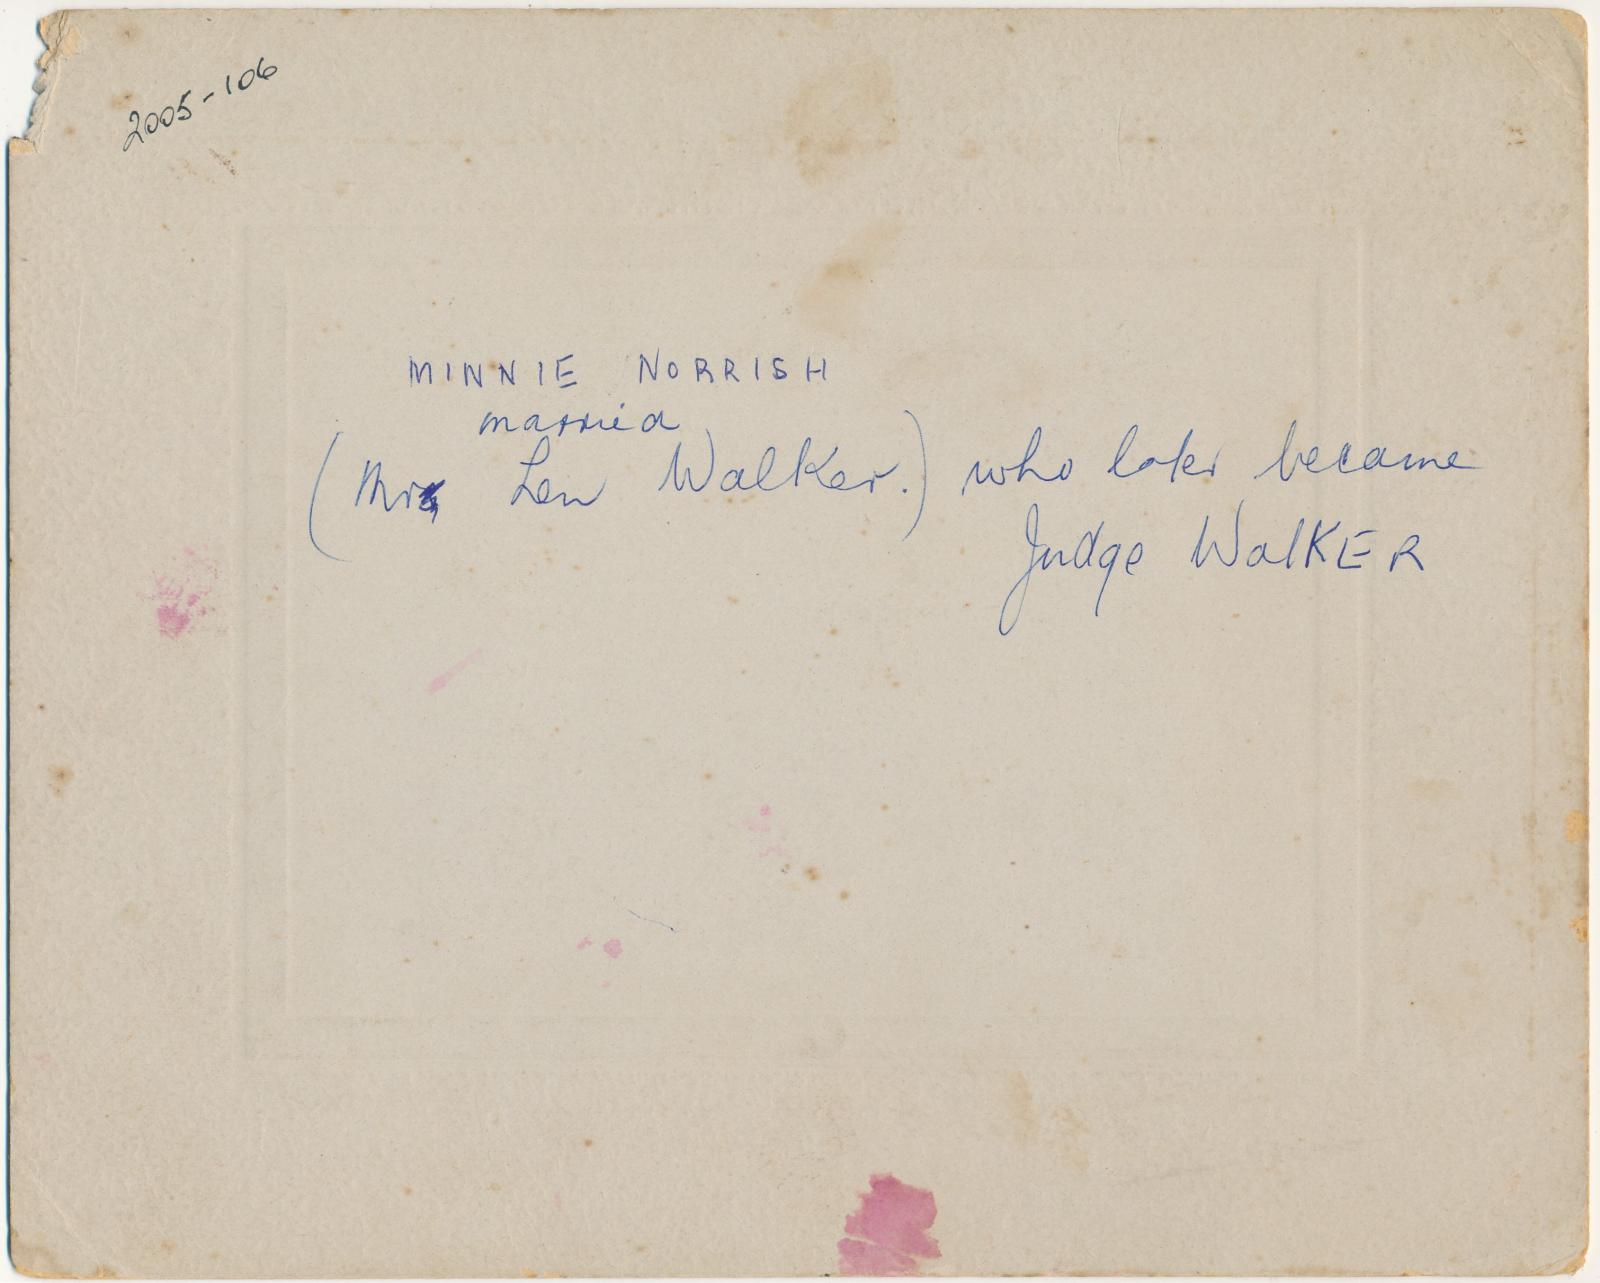 2005-106
MINNIE NORRISH
married
(Mr Len Walker.) who later became
Judge WalKER